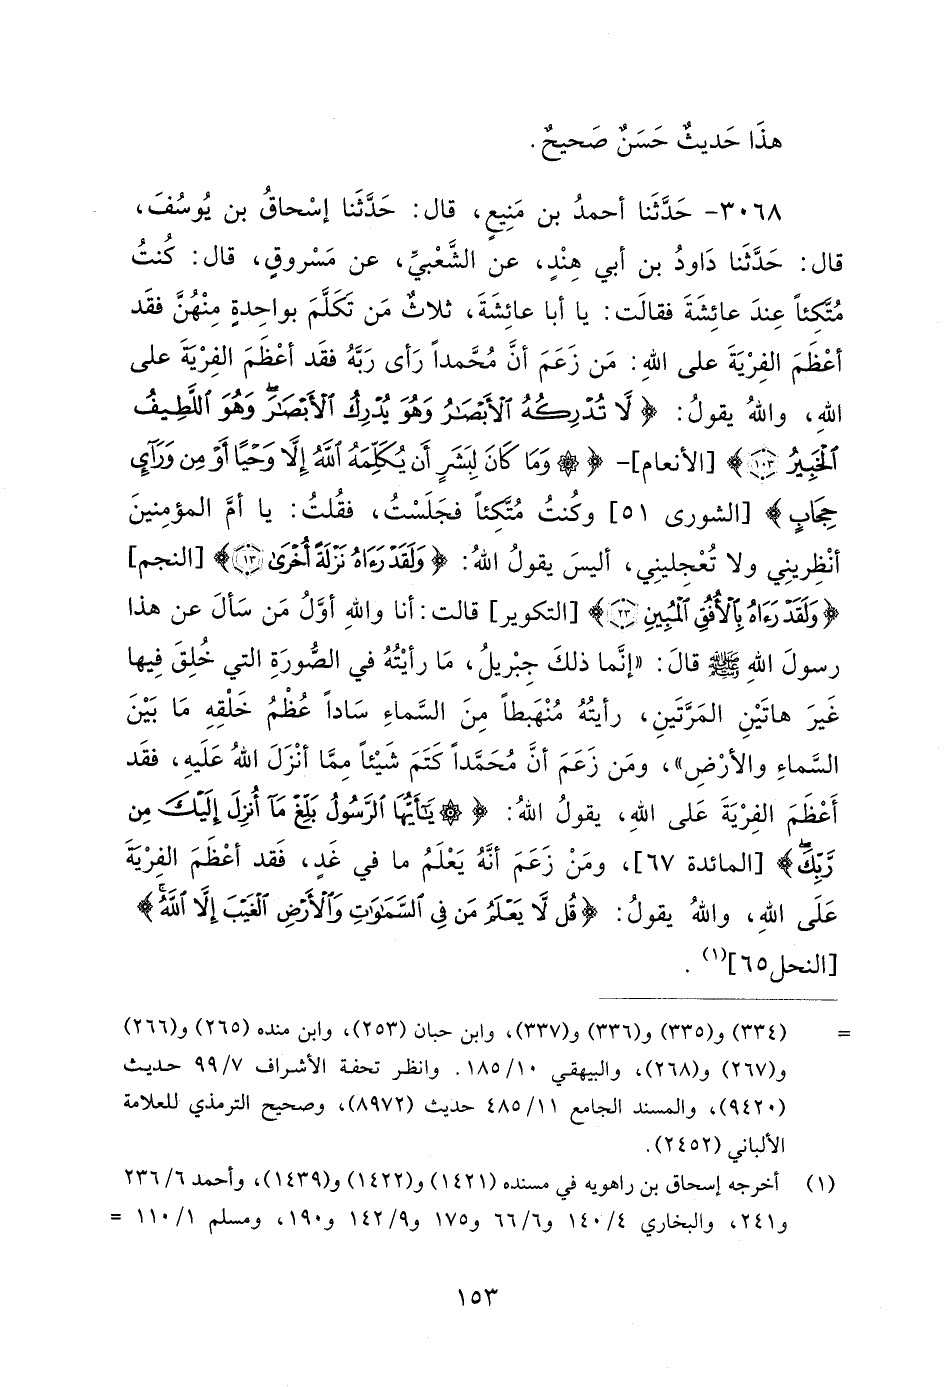 هذَا حَديثٌ حَسَنٌ صَحيحٌ .
٣٠٦٨- حَدَّثَنا أحمدُ بن مَنِيعٍ، قال: حَدَّثَنا إسْحاقُ بن يُوسُفَ،
قال: حَدَّثَنا دَاودُ بن أبي هِنْدٍ، عن الشَّعْبيِّ، عن مَسْروقٍ، قال: كُنتُ
مُتَّكِئاً عِندَ عائِشَةَ فقالَت: يا أبا عائِشَةَ، ثلاثٌ مَن تَكَلَّمَ بواحِدةٍ مِنْهُنَّ فقَد
أعْظَمَ الفِرْيَةَ على اللهِ: مَن زَعَمَ أنَّ مُحَّمداً رَأى رَبَّهُ فقَد أعظَمَ الفِرْيَةَ على
اللهِ، واللهُ يقولُ: ﴿ لَّا تُدْرِكُهُ ٱلْأَبْصَٰرُ وَهُوَ يُدْرِكُ ٱلْأَبْصَٰرَ ۖ وَهُوَ ٱللَّطِيفُ
ٱلْخَبِيرُ ١٠٣ ﴾ [الأنعام]- ﴿ ۞ وَمَا كَانَ لِبَشَرٍ أَن يُكَلِّمَهُ ٱللَّهُ إِلَّا وَحْيًا أَوْ مِن وَرَآيِٕ
حِجَابٍ ﴾ [الشورى ٥١] وكُنتُ مُتَّكِئاً فجَلَسْتُ، فقُلتُ: يا أمَّ المؤمنينَ
أنْظِرِيني ولا تُعْجلِيني، أليسَ يقولُ اللهُ: ﴿ وَلَقَدْ رَءَاهُ نَزْلَةً أُخْرَىٰ ١٣ ﴾ [النجم]
﴿ وَلَقَدْ رَءَاهُ بِٱلْأُفُقِ ٱلْمُبِينِ ٢٣ ﴾ [التكوير] قالت: أنا واللهِ أوَّلُ مَن سَألَ عن هذا
رسولَ اللهِ ﷺ قالَ: «إنَّما ذلكَ جِبْريلُ، مَا رأيْتُهُ في الصُّورَةِ التي خُلِقَ فِيها
غَيرَ هاتَيْنِ المَرَّتَينِ، رأيتُهُ مُنْهَبِطاً مِنَ السَّماءِ سَاداً عُظْمُ خَلْقِهِ مَا بَيْنَ
السَّماءِ والأرْضِ»، ومَن زَعَمَ أنَّ مُحَمَّداً كَتَمَ شَيْئاً مِمَّا أنْزَلَ اللهُ عَلَيهِ، فقَد
أَعْظَمَ الفِرْيَةَ عَلى اللهِ، يقولُ اللهُ: ﴿ ۞ يَٰٓأَيُّهَا ٱلرَّسُولُ بَلِّغْ مَآ أُنزِلَ إِلَيْكَ مِن
رَّبِّكَ ۖ ﴾ [المائدة ٦٧]، ومَنْ زَعَمَ أنَّهُ يَعْلَمُ ما في غَدٍ، فَقد أعْظَمَ الفِرْيَةَ
عَلَى اللهِ، واللهُ يقولُ: ﴿ قُل لَّا يَعْلَمُ مَن فِى ٱلسَّمَٰوَٰتِ وَٱلْأَرْضِ ٱلْغَيْبَ إِلَّا ٱللَّهُ ۚ ﴾
[النحل٦٥](١) .
= (٣٣٤) و(٣٣٥) و(٣٣٦) و(٣٣٧)، وابن حبان (٢٥٣)، وابن منده (٢٦٥) و(٢٦٦)
و(٢٦٧) و(٢٦٨)، والبيهقي ١٠/ ١٨٥. وانظر تحفة الأشراف ٧/ ٩٩ حديث
(٩٤٢٠)، والمسند الجامع ١١/ ٤٨٥ حديث (٨٩٧٢)، وصحيح الترمذي للعلامة
الألباني (٢٤٥٢).
(١) أخرجه إسحاق بن راهويه في مسنده (١٤٢١) و(١٤٢٢) و(١٤٣٩)، وأحمد ٦/ ٢٣٦
و٢٤١، والبخاري ٤/ ١٤٠ و٦/ ٦٦ و١٧٥ و٩/ ١٤٢ و١٩٠، ومسلم ١/ ١١٠ =
١٥٣